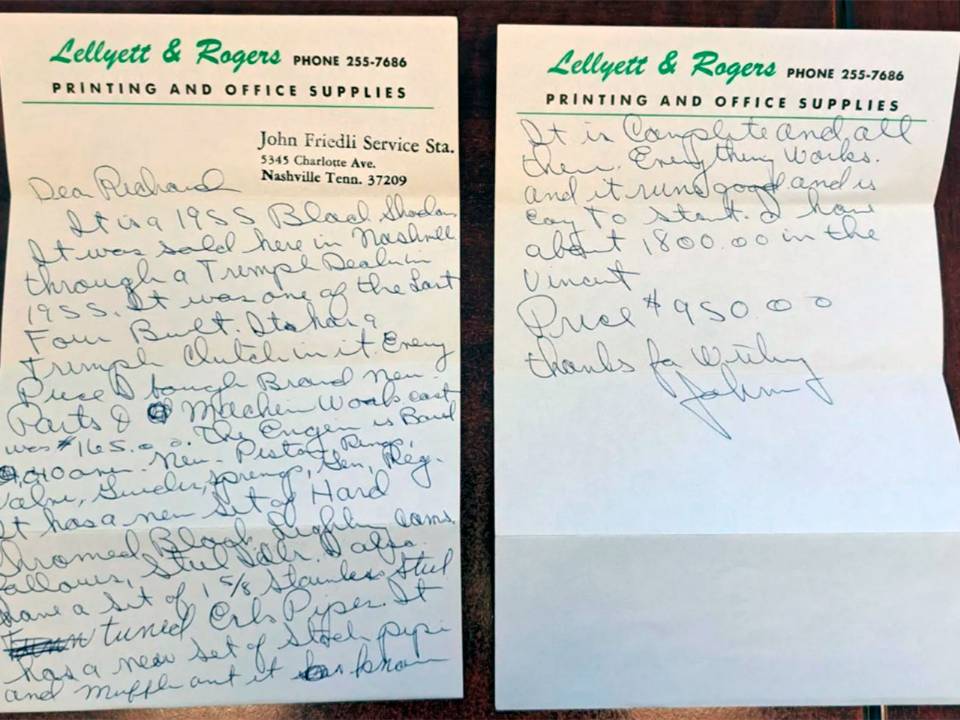 Lellyett & Rogers PHONE 255-7686
PRINTING AND OFFICE SUPPLIES
John Friedli Service Sta.
5345 Charlotte Ave.
Nashville Tenn. 37209
Dear Richard
It is a 1955 Black Shadow
It was sold here in Nashville
through a Trumph Dealer in
1955. It was one of the Last
Four Built. It has a
Trumph Clutch in it. Every
Piece I bough Brand New
Parts & Machien Works cost
was $165.00. The Engen is Bard
.040 New Piston Rings,
Valve, Guides, springs, Gen, Reg.
It has a new set of Hard
Chromed Black Lighting cams,
Steel Idlr. I also
have a set of 1 5/8 Stainless Steel
tuned Exh Pipes. It
has a new set of Stock pipe
and muffle ont it
Lellyett & Rogers PHONE 255-7686
PRINTING AND OFFICE SUPPLIES
It is Complete and all
ther. Everything Works.
and it runs good and is
Easy to start. I have
about 1800.00 in the
Vincent
Price $950.00
thanks for Writing
Johnny